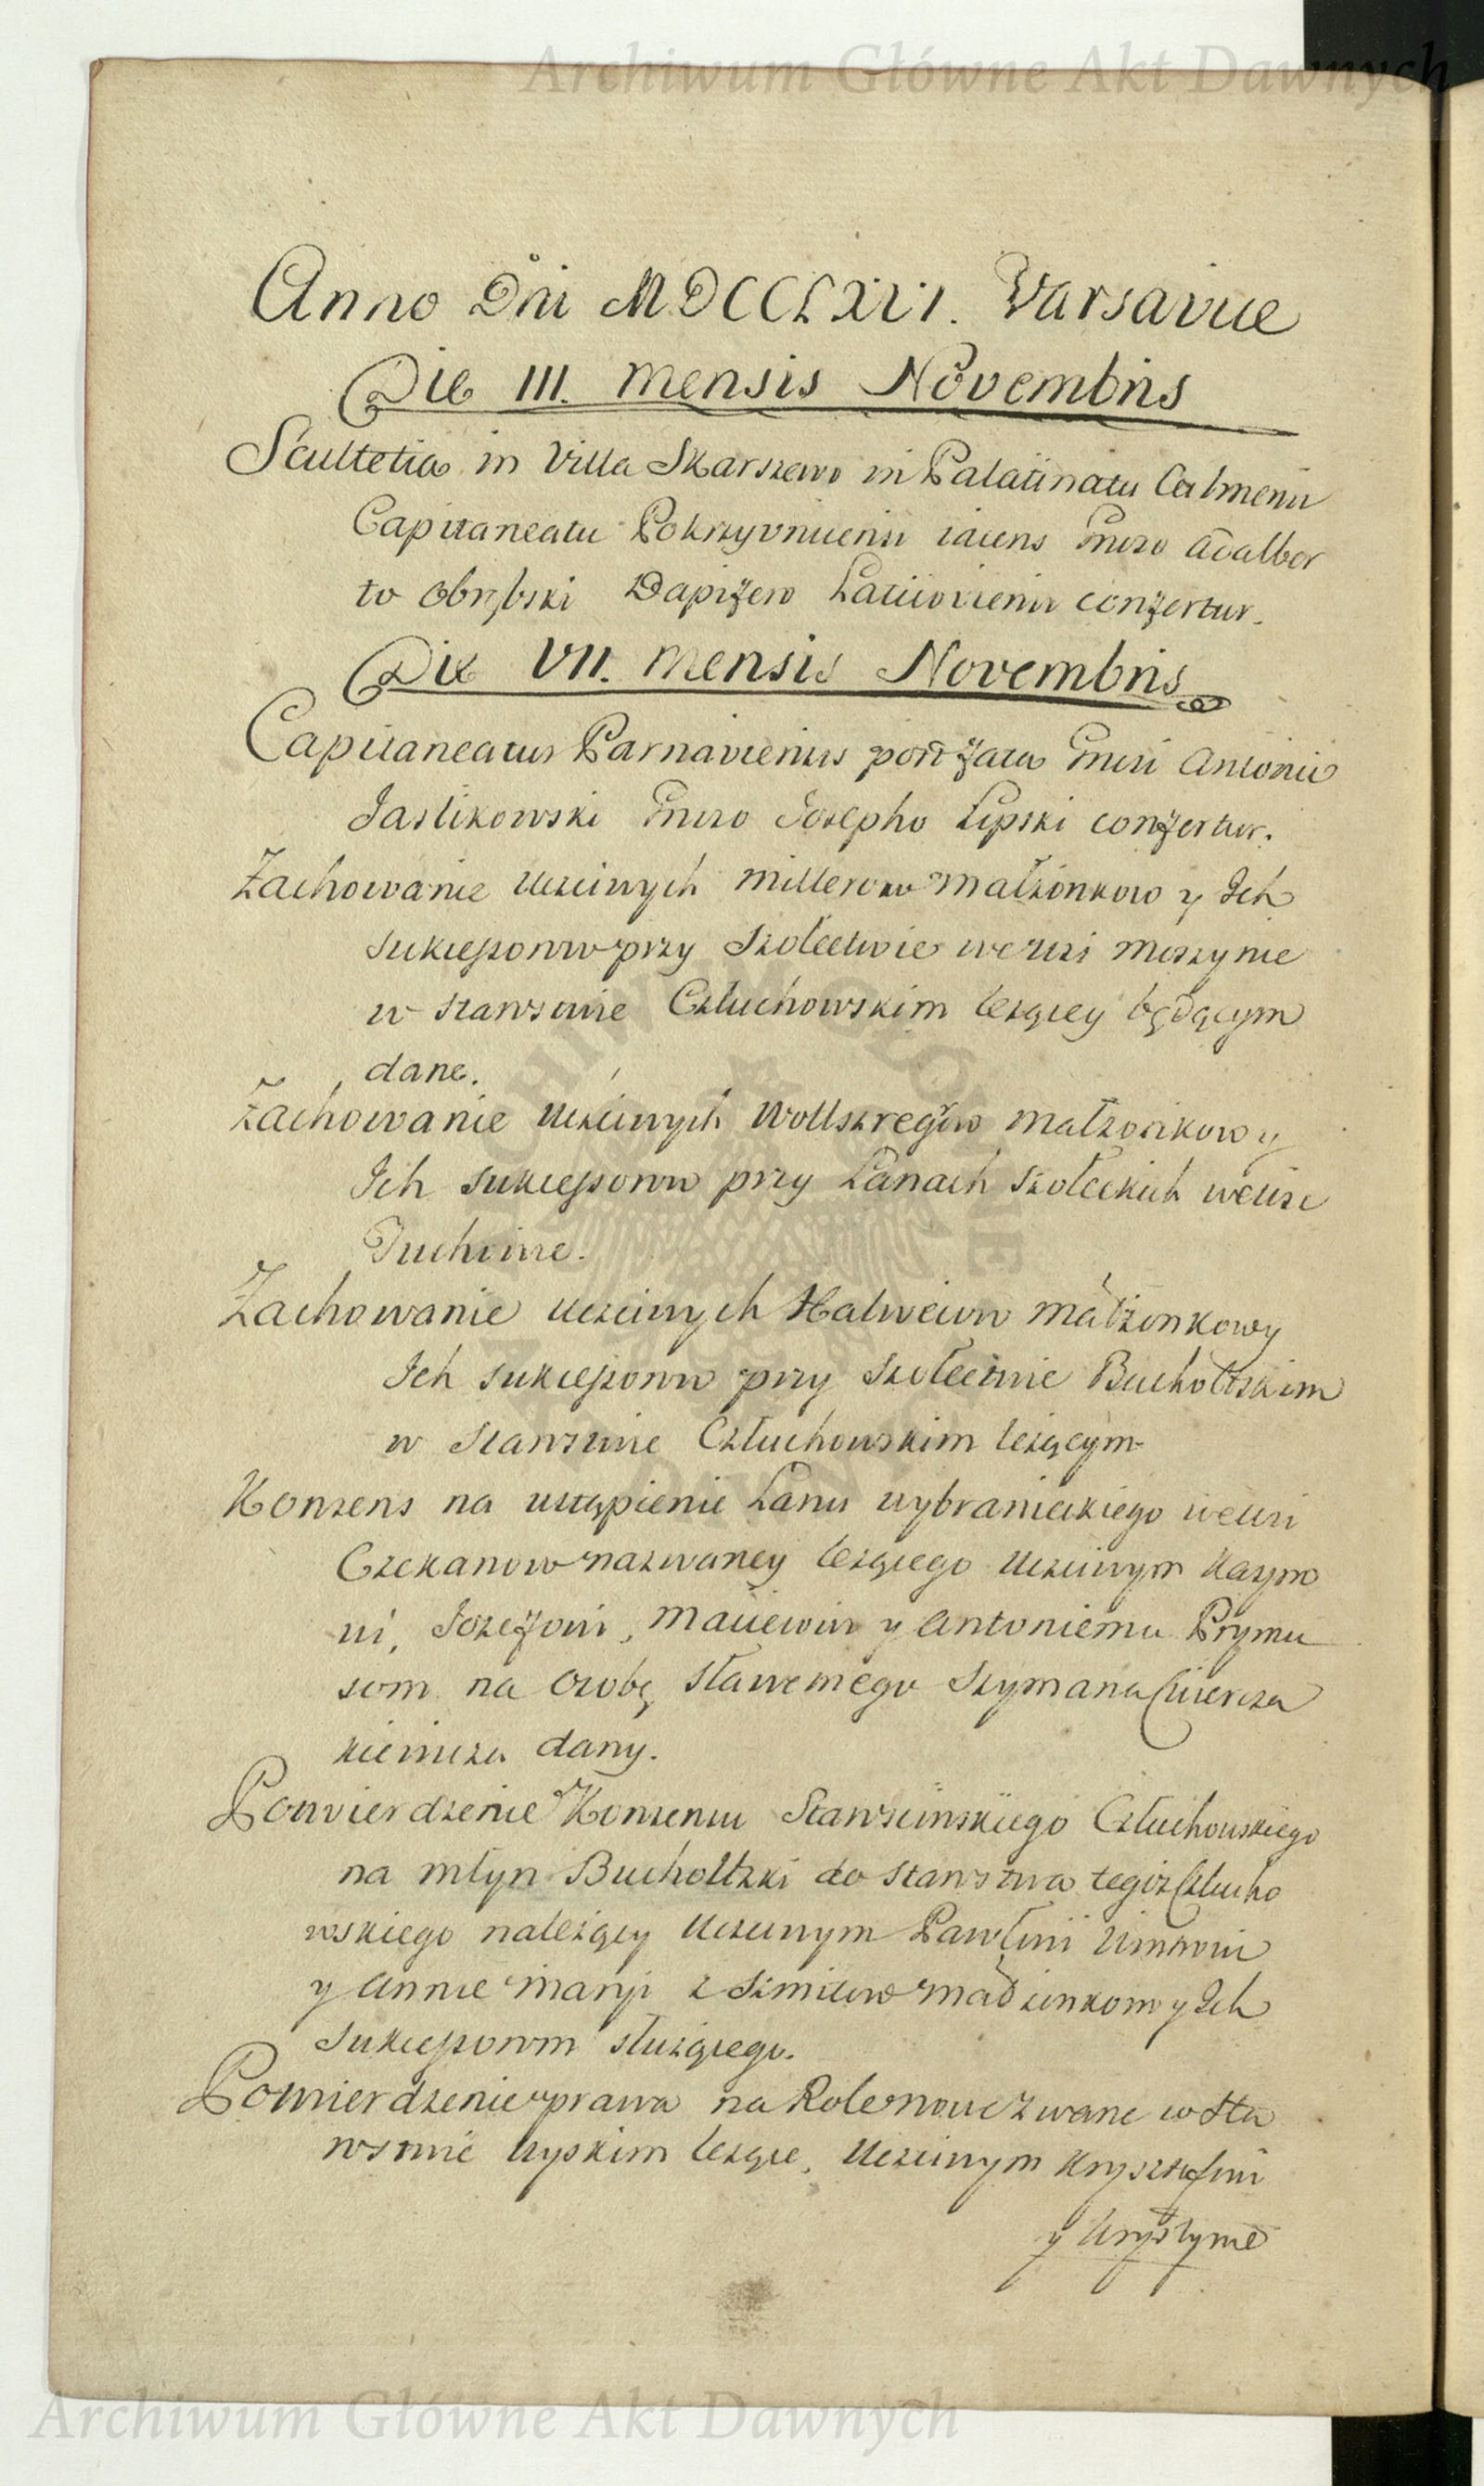 Archiwum Główne Akt Dawnych
Anno Dni MDCCLXVI. Varsaviae
Die III. Mensis Novembris
Scultetia in Villa Skarszewo in Palatinatu Culmensi
Capitaneatu Pokrzyvnicensi iacens Gnroso Adalber
to Obrębski Dapifero Laticioviensi confertur.
Die VII. Mensis Novembris
Capitaneatus Parnaviensis post fata Gnrosi Antonii
Jastikowski Gnroso Josepho Lipski confertur.
Zachowanie Uczciwych Millerow Małżonkow y Ich
Sukcessorow przy Szołectwie we wsi Moszynie
w Starostwie Człuchowskim leżącey będącym
dane.
Zachowanie Uczciwych Wollszregiow Małżonkow y
Ich Sukcessorow przy Łanach Szołeckich we wsi
Zachowanie Uczciwych Halweiow Małżonkow y
Ich Sukcessorow przy Szołectwie Bucholtskim
w Starostwie Człuchowskim leżącym
Konsens na ustąpienie Łanu wybranieckiego we wsi
Czekanow nazwaney leżącego Uczciwym Kazmo
wi, Jozefowi, Maciewiu y Antoniemu Prymu
som na osobę Sławetnego Szymana Cwiercza
kiewicza dany.
Potwierdzenie Konsensu Starościnskiego Człuchowskiego
na młyn Bucholtzki do Starostwa tegoż Człucho
wskiego należący Uczciwym Pawłowi
y Annie Maryi z Szmitow Małżonkom y Ich
Sukcessorom służącego.
Potwierdzenie prawa na Role Nowe zwane w Sta
rostwie Ryskim leżące, Uczciwym Krysztofowi
y Krystynie
Archiwum Główne Akt Dawnych